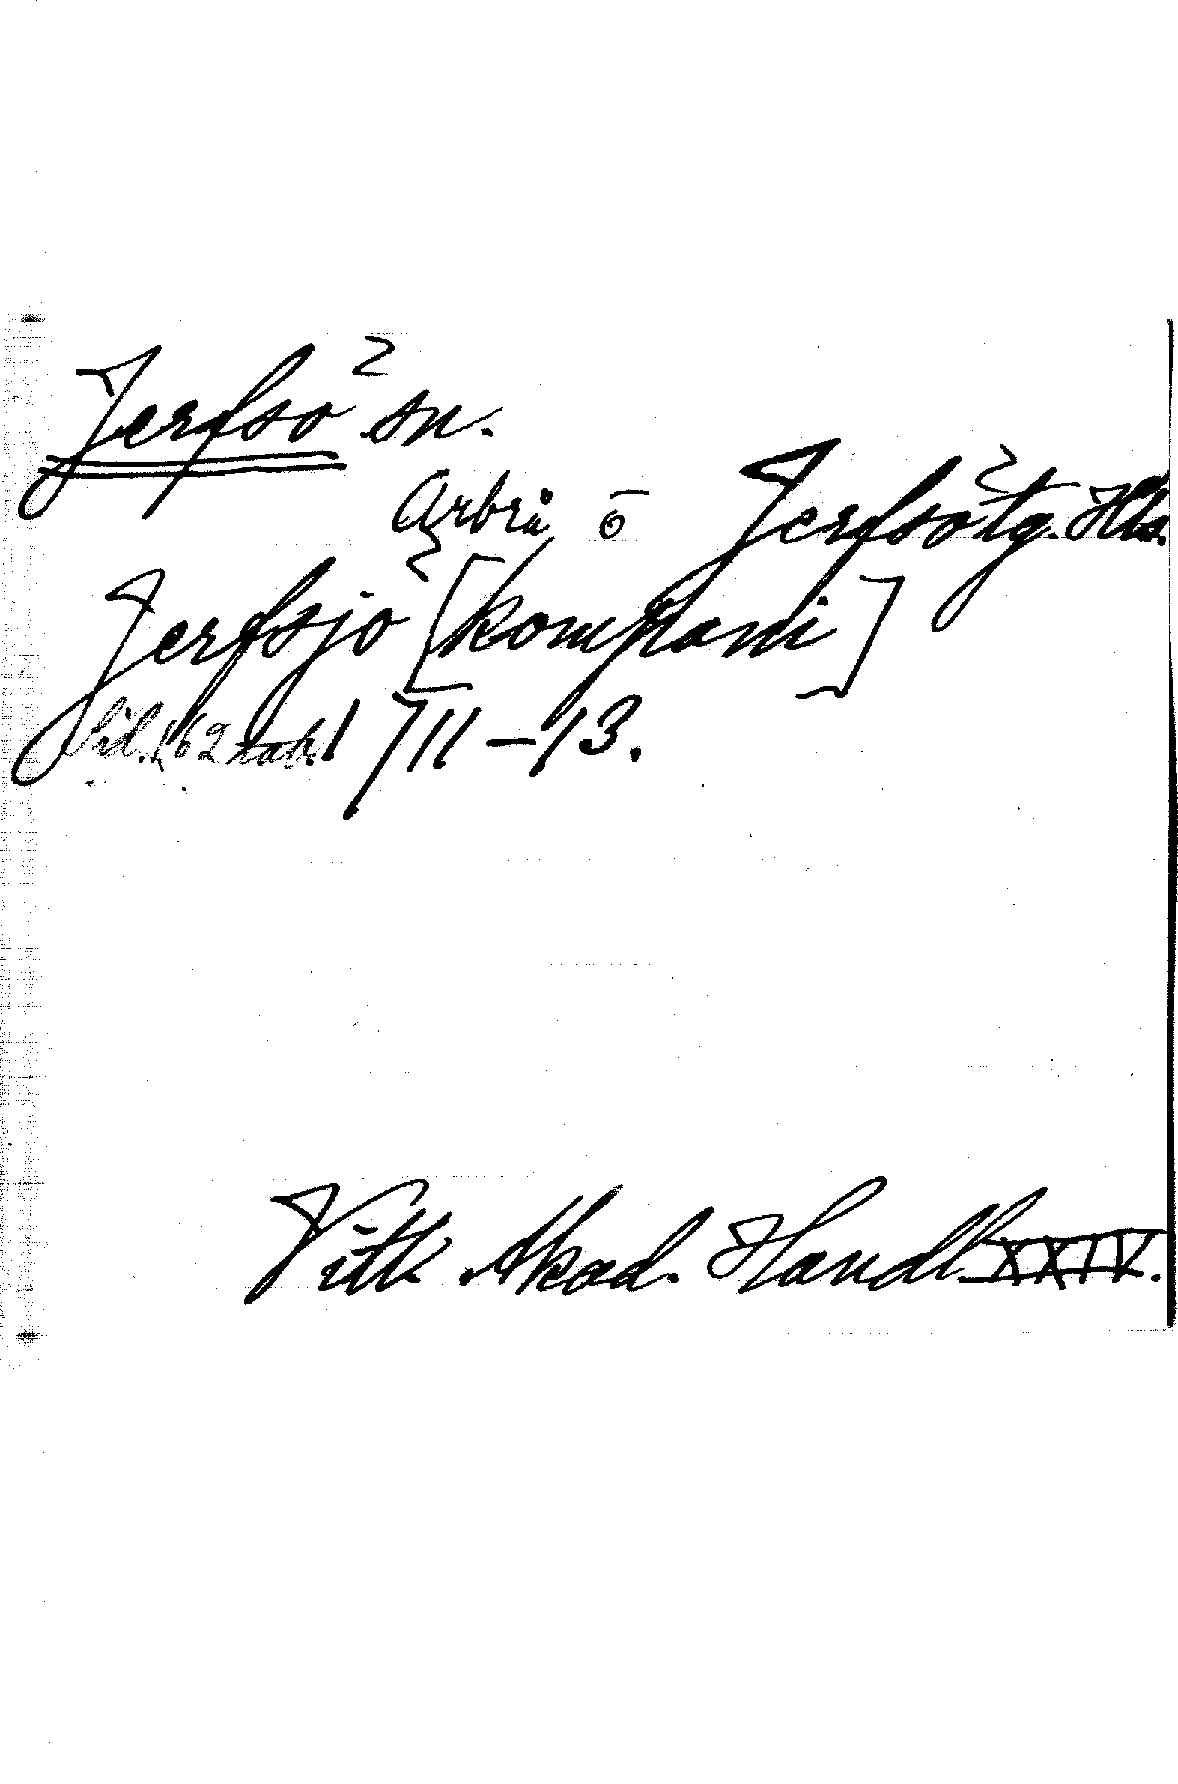 Jerfsö sn.
Arbrå o Jerfsö tg. Hls.
Jerfsjö [kompani]
Sid. 162 not. 1 1711-13.
Vitt. Akad. Handl. XXIV.